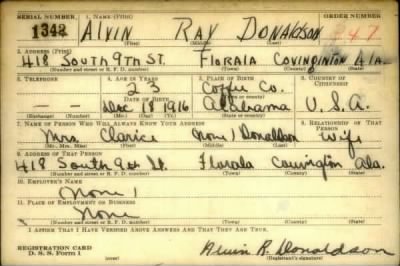 SERIAL NUMBER 1. NAME (Print) ORDER NUMBER
1342 ALVIN RAY DONALDSON 847
(First) (Middle) (Last)
2. ADDRESS (Print)
418 SOUTH 9TH ST. FLORALA COVINGINTON ALA.
(Number and street or R. F. D. number) (Town) (County) (State)
3. TELEPHONE 4. AGE IN YEARS 5. PLACE OF BIRTH 6. COUNTRY OF CITIZENSHIP
23 Coffee Co.
DATE OF BIRTH (Town or county)
— — Dec. 18 1916 Alabama U.S.A.
(Exchange) (Number) (Mo.) (Day) (Yr.) (State or country)
7. NAME OF PERSON WHO WILL ALWAYS KNOW YOUR ADDRESS 8. RELATIONSHIP OF THAT PERSON
Mrs. Clarice (none) Donaldson Wife
(Mr., Mrs., Miss) (First) (Middle) (Last)
9. ADDRESS OF THAT PERSON
418 South 9th St. Florala Covington Ala.
(Number and street or R. F. D. number) (Town) (County) (State)
10. EMPLOYER'S NAME
None
11. PLACE OF EMPLOYMENT OR BUSINESS
None
(Number and street or R. F. D. number) (Town) (County) (State)
I AFFIRM THAT I HAVE VERIFIED ABOVE ANSWERS AND THAT THEY ARE TRUE.
REGISTRATION CARD
D. S. S. Form 1
Alvin R. Donaldson
(Registrant's signature)